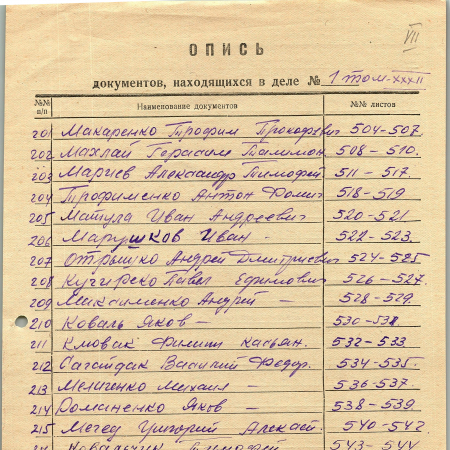 VII
ОПИСЬ
документов, находящихся в деле № 1 том-XXXII
№№ п/п Наименование документов №№ листов
201 Макаренко Трофим Прокофевич 504-507
202 Махлай Герасим 508-510.
203 Александр Тимофей 511-517.
204 Трофименко Антон Фомич 518-519
205 Матула Иван Андреевич 520-521
206 Марушков Иван 522-523.
207 Отрышко Андрей Дмитриевич 524-525
208 Павел Ефимович 526-527.
209 Максименко Андрей — 528-529.
210 Коваль Яков — 530-531.
211 Филипп Касьян. 532-533
212 Сагайдак Василий Федор. 534-535.
213 Михаил — 536-537.
214 Романенко Яков — 538-539.
215 Григорий Алексей. 540-542
Ковальчик Тимофей 543-544